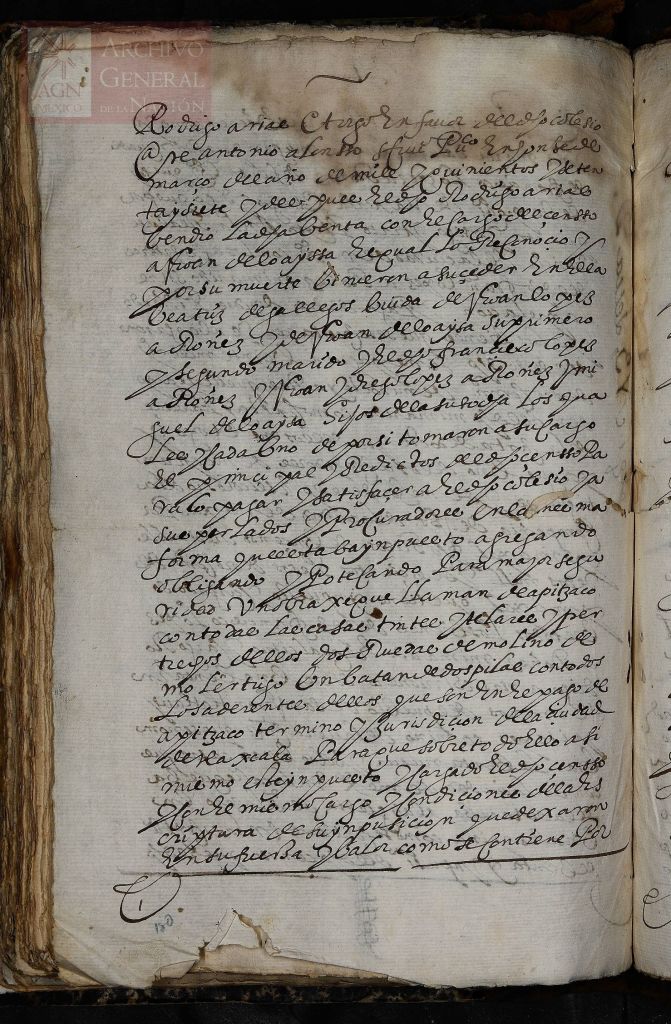 ARCHIVO
GENERAL
DE LA NACIÓN
AGN
MÉXICO
Rodrigo arias otorgo En favor del dho colesio
Ante antonio alonsso Puco En honse de
março del año de mill y quinientos y seten
ta y siete y del que el dho Rodrigo arias
bendio la dha benta con el cargo del censso
a Joan de loayssa el qual lo Reconocio y
por su muerte binieron a suceder En ella
beatriz de gallegos biuda de Joan lopez
adRoñez y de Joan de loaysa su primero
y segundo marido y el dho francisco lopez
adRoñez y Joan y diego lopez adRoñez y mi
guel de loaysa hijos de la susodha los qua
les cada bno de por si tomaron a su cargo
el principal y Reditos del dho censso pa
ra lo pagar y satisfacer a el dho colesio y a
sus perlados y procuradores en la mesma
forma questaba ynpuesto agregando
obligando ypotecando para mayor segu
ridad Un obraxe que llaman de apitzaco
con todas las casas tintes telares y per
trechos dellos dos Ruedas de molino de
moler trigo Un batan de dos pilas con todos
los aderentes dellos que son En el pago de
apitzaco termino y Jurisdicion de la ciudad
de tlaxcala para que sobre todo Ello asi
mismo este ynpuesto y cargado el dho censso
con el mismo cargo y condiciones de la es
criptura de su ynpusicion quedexaron
En su fuersa y balor como se contiene Por
661